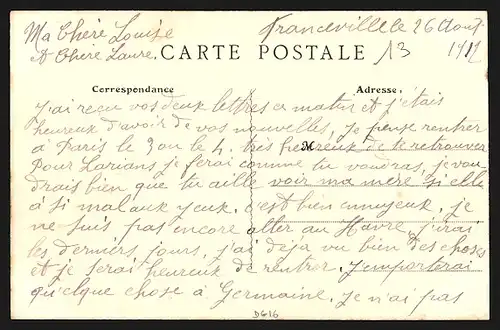 Ma Chère Louise
et Chère Laure.
Franceville le 26 Aout
1912
13
CARTE POSTALE
Correspondance
Adresse:
J'ai reçu vos deux lettres ce matin et j'étais
heureux d'avoir de vos nouvelles, je pense rentrer
à Paris le 3 ou le 4. très heureux de te retrouver
M
Pour Larians je ferai comme tu voudras, je vou-
drais bien que tu aille voir ma mère si elle
à si mal aux yeux. c'est bien ennuyeux, je
ne suis pas encore aller au Havre, j'irai
les derniers jours, j'ai déja vu bien des choses
et je serai heureux de rentrer, j'emporterai
quelque chose à Germaine, je n'ai pas
D616